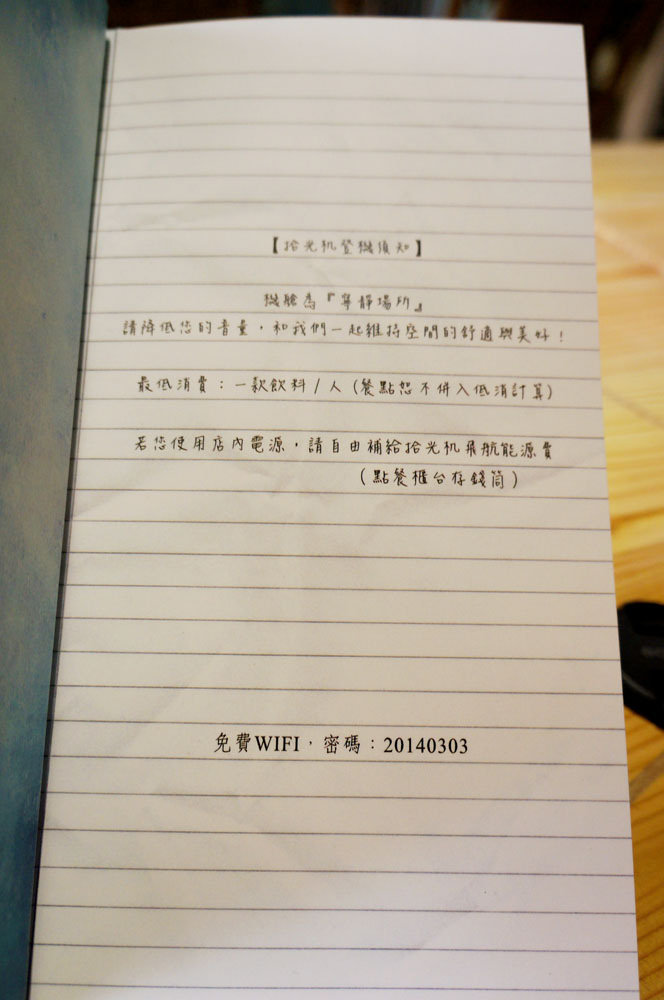 【拾光机登機須知】
機艙為『寧靜場所』
請降低您的音量，和我們一起維持空間的舒適與美好！
最低消費：一款飲料/人(餐點恕不併入低消計算)
若您使用店內電源，請自由補給拾光机飛航能源費
(點餐櫃台存錢筒)
免費WIFI，密碼：20140303